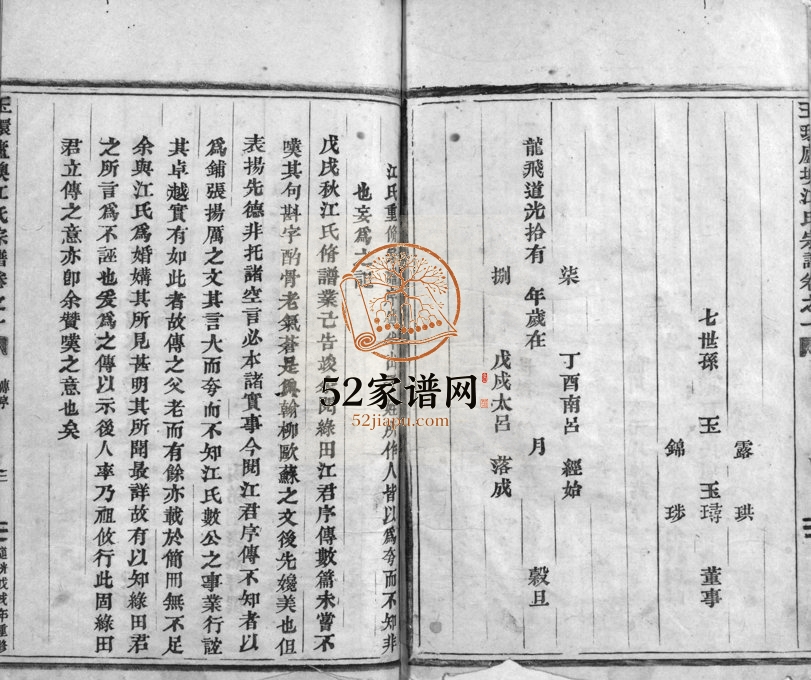 龍飛道光拾有
柒
捌
年歲在
丁酉南呂 經始
戊戌太呂 落成
月 穀旦
七世孫
玉
錦
露
珙
玉璹
琗
董事
江氏重修
所作人皆以爲夸而不知非
也妄爲之
戊戌秋江氏脩譜業已告竣
閱綠田江君序傳數篇未嘗不
嘆其句斟字酌骨老氣蒼是與翰柳歐蘇之文後先媲美也但
表揚先德非托諸空言必本諸實事今閱江君序傳不知者以
爲鋪張揚厲之文其言大而夸而不知江氏數公之事業行誼
其卓越實有如此者故傳之父老而有餘亦載於簡冊無不足
余與江氏爲婚媾其所見甚明其所聞最詳故有以知綠田君
之所言爲不誣也爰爲之傳以示後人率乃祖攸行此固綠田
君立傳之意亦卽余贊嘆之意也矣
玉環蘆墺江氏宗譜卷之
傳序
三
道光戊戌年重修
52家谱网
52jiapu.com